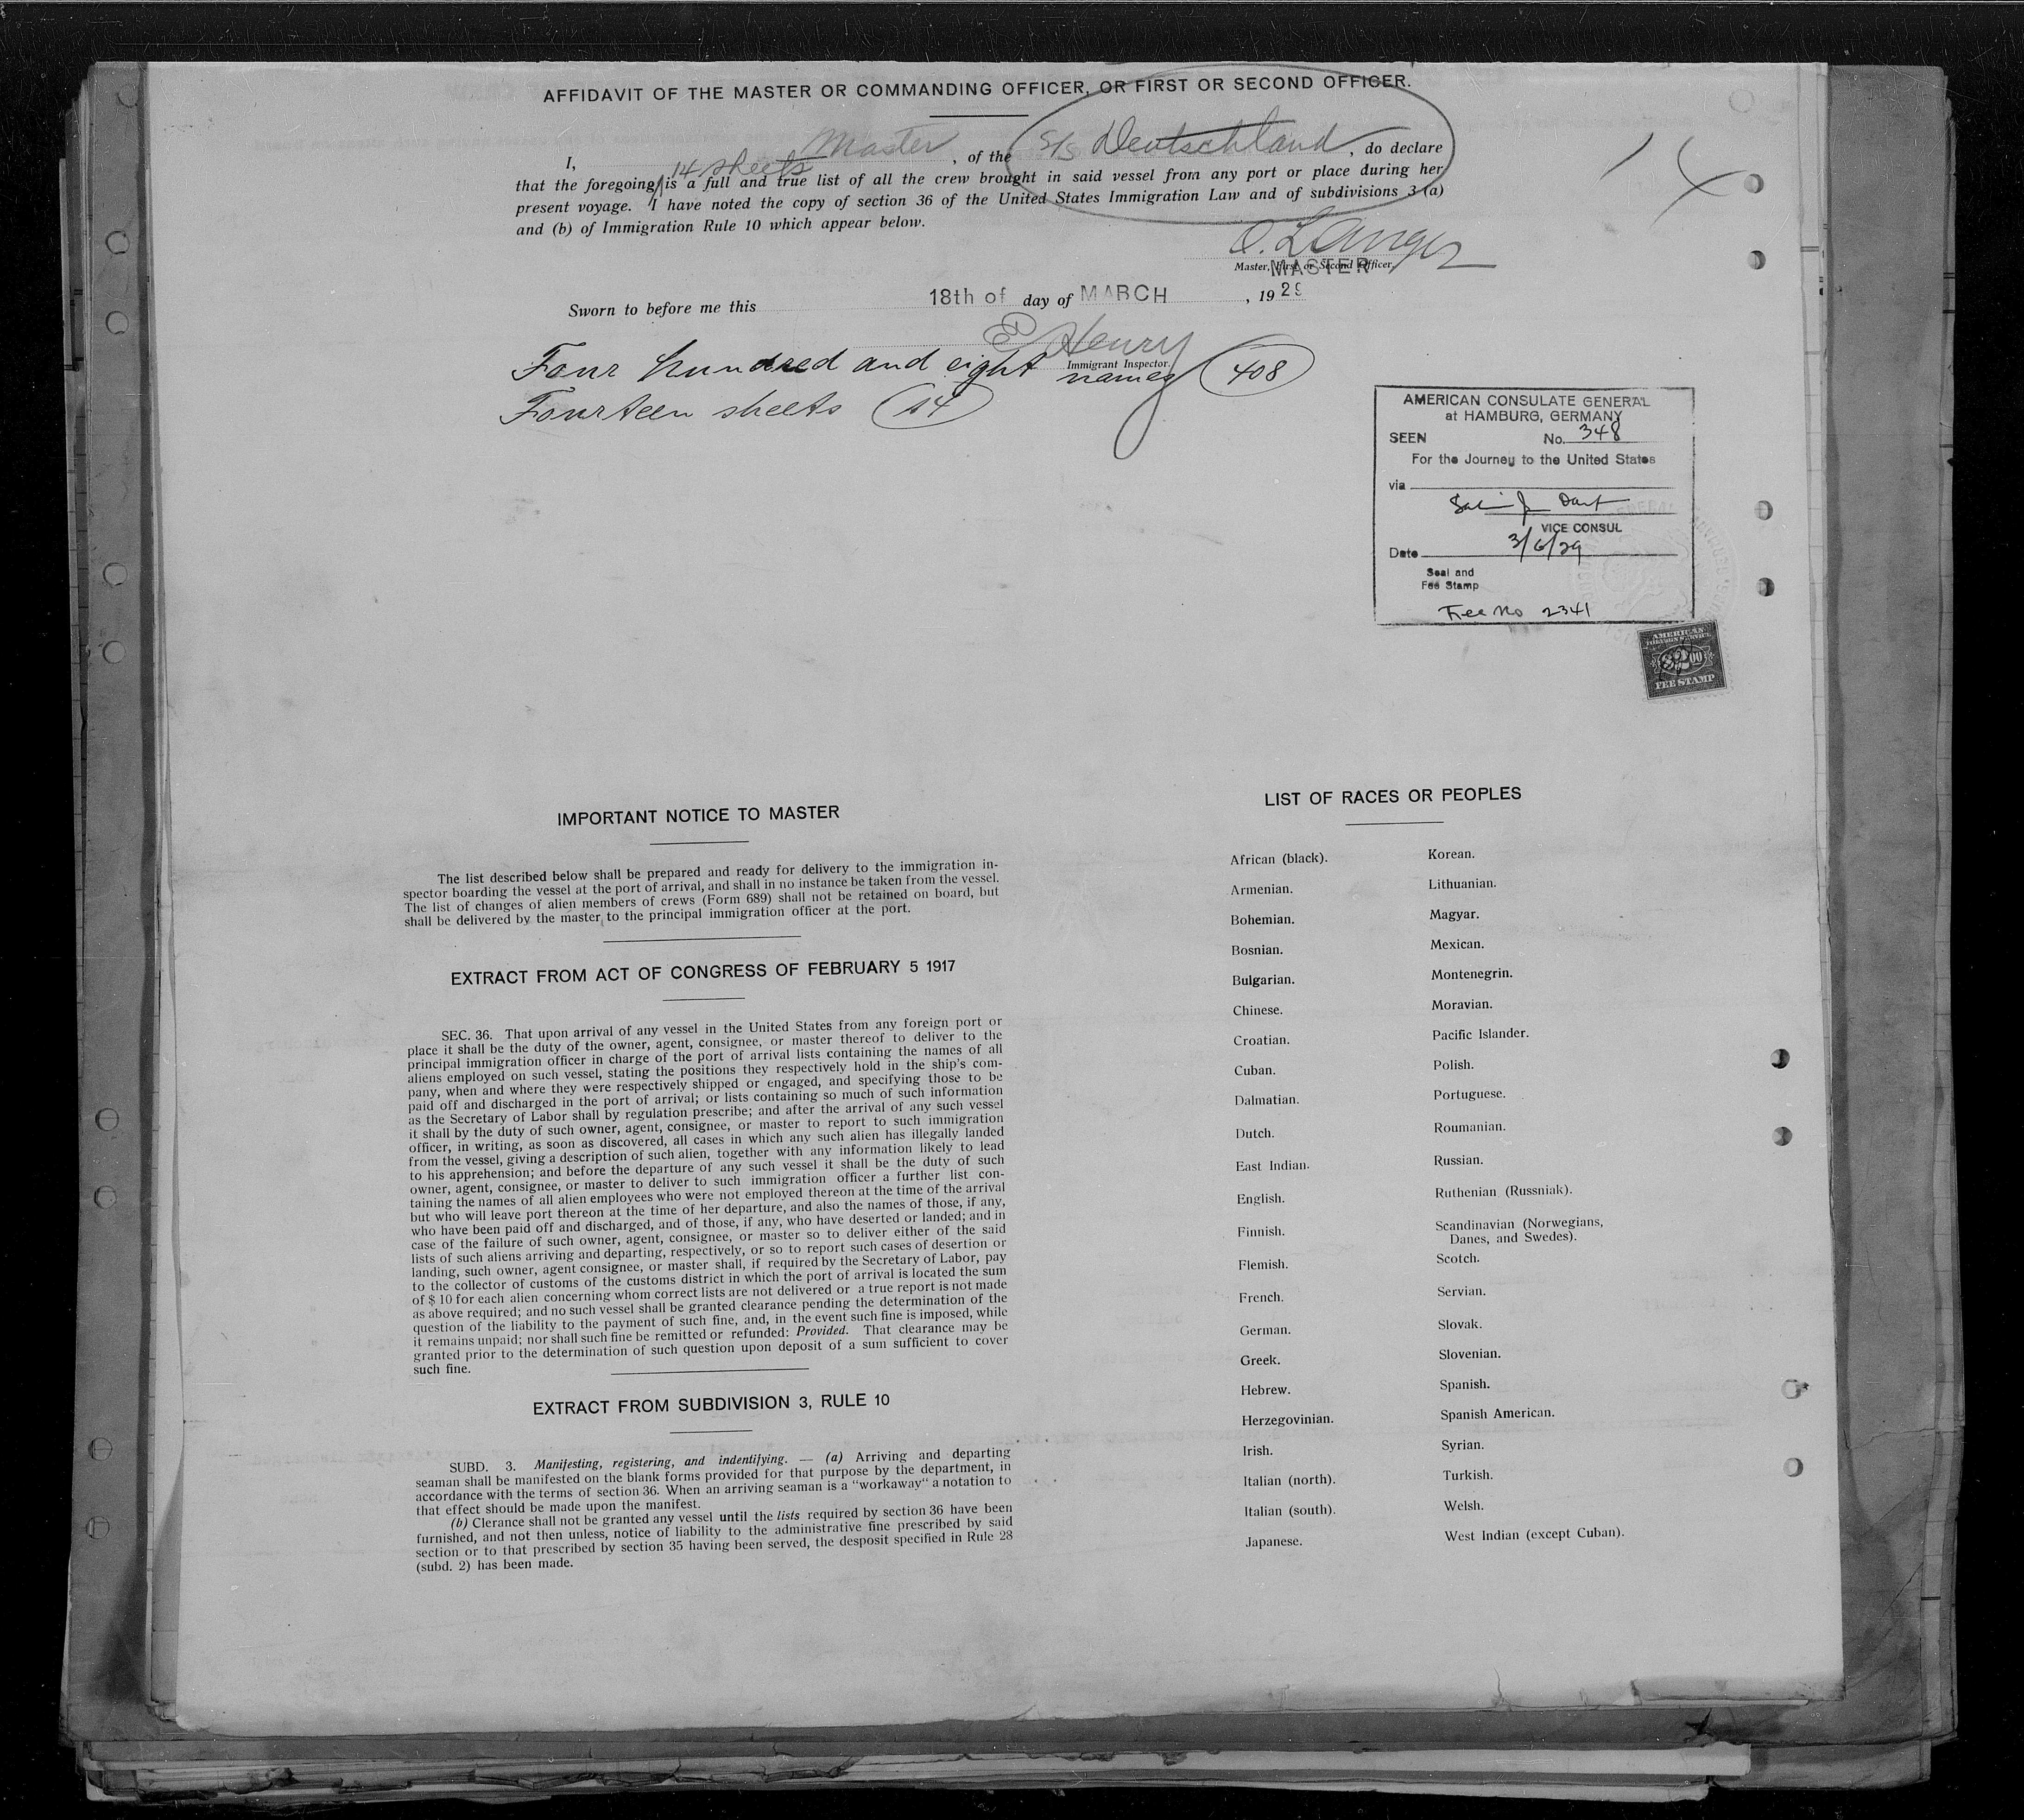 AFFIDAVIT OF THE MASTER OR COMMANDING OFFICER, OR FIRST OR SECOND OFFICER.
I, Master, of the S/S Deutschland, do declare
14 sheets
that the foregoing is a full and true list of all the crew brought in said vessel from any port or place during her
present voyage. I have noted the copy of section 36 of the United States Immigration Law and of subdivisions 3 (a)
and (b) of Immigration Rule 10 which appear below.
14
O. Langer
Master, First or Second Officer.
MASTER
Sworn to before me this 18th of day of MARCH, 1929
E Henry
Immigrant Inspector.
Four hundred and eight names 408
Fourteen sheets 14
AMERICAN CONSULATE GENERAL
at HAMBURG, GERMANY
SEEN No. 348
For the Journey to the United States
via
VICE CONSUL
Date 3/6/29
Seal and
Fee Stamp
Fee No 2341
AMERICAN
FOREIGN SERVICE
$2.00
FEE STAMP
IMPORTANT NOTICE TO MASTER
The list described below shall be prepared and ready for delivery to the immigration in-
spector boarding the vessel at the port of arrival, and shall in no instance be taken from the vessel.
The list of changes of alien members of crews (Form 689) shall not be retained on board, but
shall be delivered by the master to the principal immigration officer at the port.
EXTRACT FROM ACT OF CONGRESS OF FEBRUARY 5 1917
SEC. 36. That upon arrival of any vessel in the United States from any foreign port or
place it shall be the duty of the owner, agent, consignee, or master thereof to deliver to the
principal immigration officer in charge of the port of arrival lists containing the names of all
aliens employed on such vessel, stating the positions they respectively hold in the ship's com-
pany, when and where they were respectively shipped or engaged, and specifying those to be
paid off and discharged in the port of arrival; or lists containing so much of such information
as the Secretary of Labor shall by regulation prescribe; and after the arrival of any such vessel
it shall by the duty of such owner, agent, consignee, or master to report to such immigration
officer, in writing, as soon as discovered, all cases in which any such alien has illegally landed
from the vessel, giving a description of such alien, together with any information likely to lead
to his apprehension; and before the departure of any such vessel it shall be the duty of such
owner, agent, consignee, or master to deliver to such immigration officer a further list con-
taining the names of all alien employees who were not employed thereon at the time of the arrival
but who will leave port thereon at the time of her departure, and also the names of those, if any,
who have been paid off and discharged, and of those, if any, who have deserted or landed; and in
case of the failure of such owner, agent, consignee, or master so to deliver either of the said
lists of such aliens arriving and departing, respectively, or so to report such cases of desertion or
landing, such owner, agent consignee, or master shall, if required by the Secretary of Labor, pay
to the collector of customs of the customs district in which the port of arrival is located the sum
of $ 10 for each alien concerning whom correct lists are not delivered or a true report is not made
as above required; and no such vessel shall be granted clearance pending the determination of the
question of the liability to the payment of such fine, and, in the event such fine is imposed, while
it remains unpaid; nor shall such fine be remitted or refunded: Provided. That clearance may be
granted prior to the determination of such question upon deposit of a sum sufficient to cover
such fine.
EXTRACT FROM SUBDIVISION 3, RULE 10
SUBD. 3. Manifesting, registering, and indentifying. — (a) Arriving and departing
seaman shall be manifested on the blank forms provided for that purpose by the department, in
accordance with the terms of section 36. When an arriving seaman is a "workaway" a notation to
that effect should be made upon the manifest.
(b) Clerance shall not be granted any vessel until the lists required by section 36 have been
furnished, and not then unless, notice of liability to the administrative fine prescribed by said
section or to that prescribed by section 35 having been served, the desposit specified in Rule 28
(subd. 2) has been made.
LIST OF RACES OR PEOPLES
African (black).
Armenian.
Bohemian.
Bosnian.
Bulgarian.
Chinese.
Croatian.
Cuban.
Dalmatian.
Dutch.
East Indian.
English.
Finnish.
Flemish.
French.
German.
Greek.
Hebrew.
Herzegovinian.
Irish.
Italian (north).
Italian (south).
Japanese.
Korean.
Lithuanian.
Magyar.
Mexican.
Montenegrin.
Moravian.
Pacific Islander.
Polish.
Portuguese.
Roumanian.
Russian.
Ruthenian (Russniak).
Scandinavian (Norwegians,
Danes, and Swedes).
Scotch.
Servian.
Slovak.
Slovenian.
Spanish.
Spanish American.
Syrian.
Turkish.
Welsh.
West Indian (except Cuban).